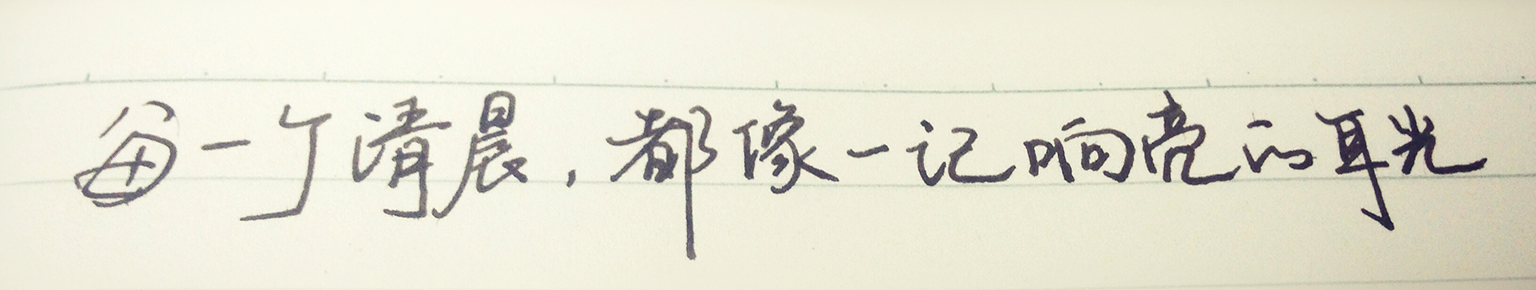 每一个清晨，都像一记响亮的耳光